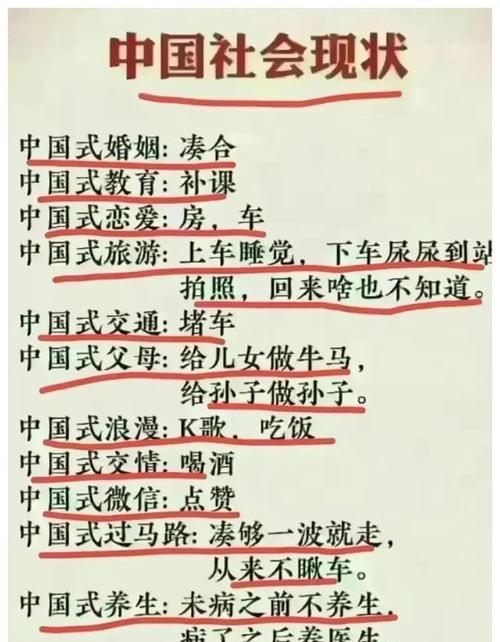 中国社会现状
中国式婚姻：凑合
中国式教育：补课
中国式恋爱：房，车
中国式旅游：上车睡觉，下车尿尿到站
拍照，回来啥也不知道。
中国式交通：堵车
中国式父母：给儿女做牛马，
给孙子做孙子。
中国式浪漫：K歌，吃饭
中国式交情：喝酒
中国式微信：点赞
中国式过马路：凑够一波就走，
从来不瞅车。
中国式养生：未病之前不养生，
病了之后养医生